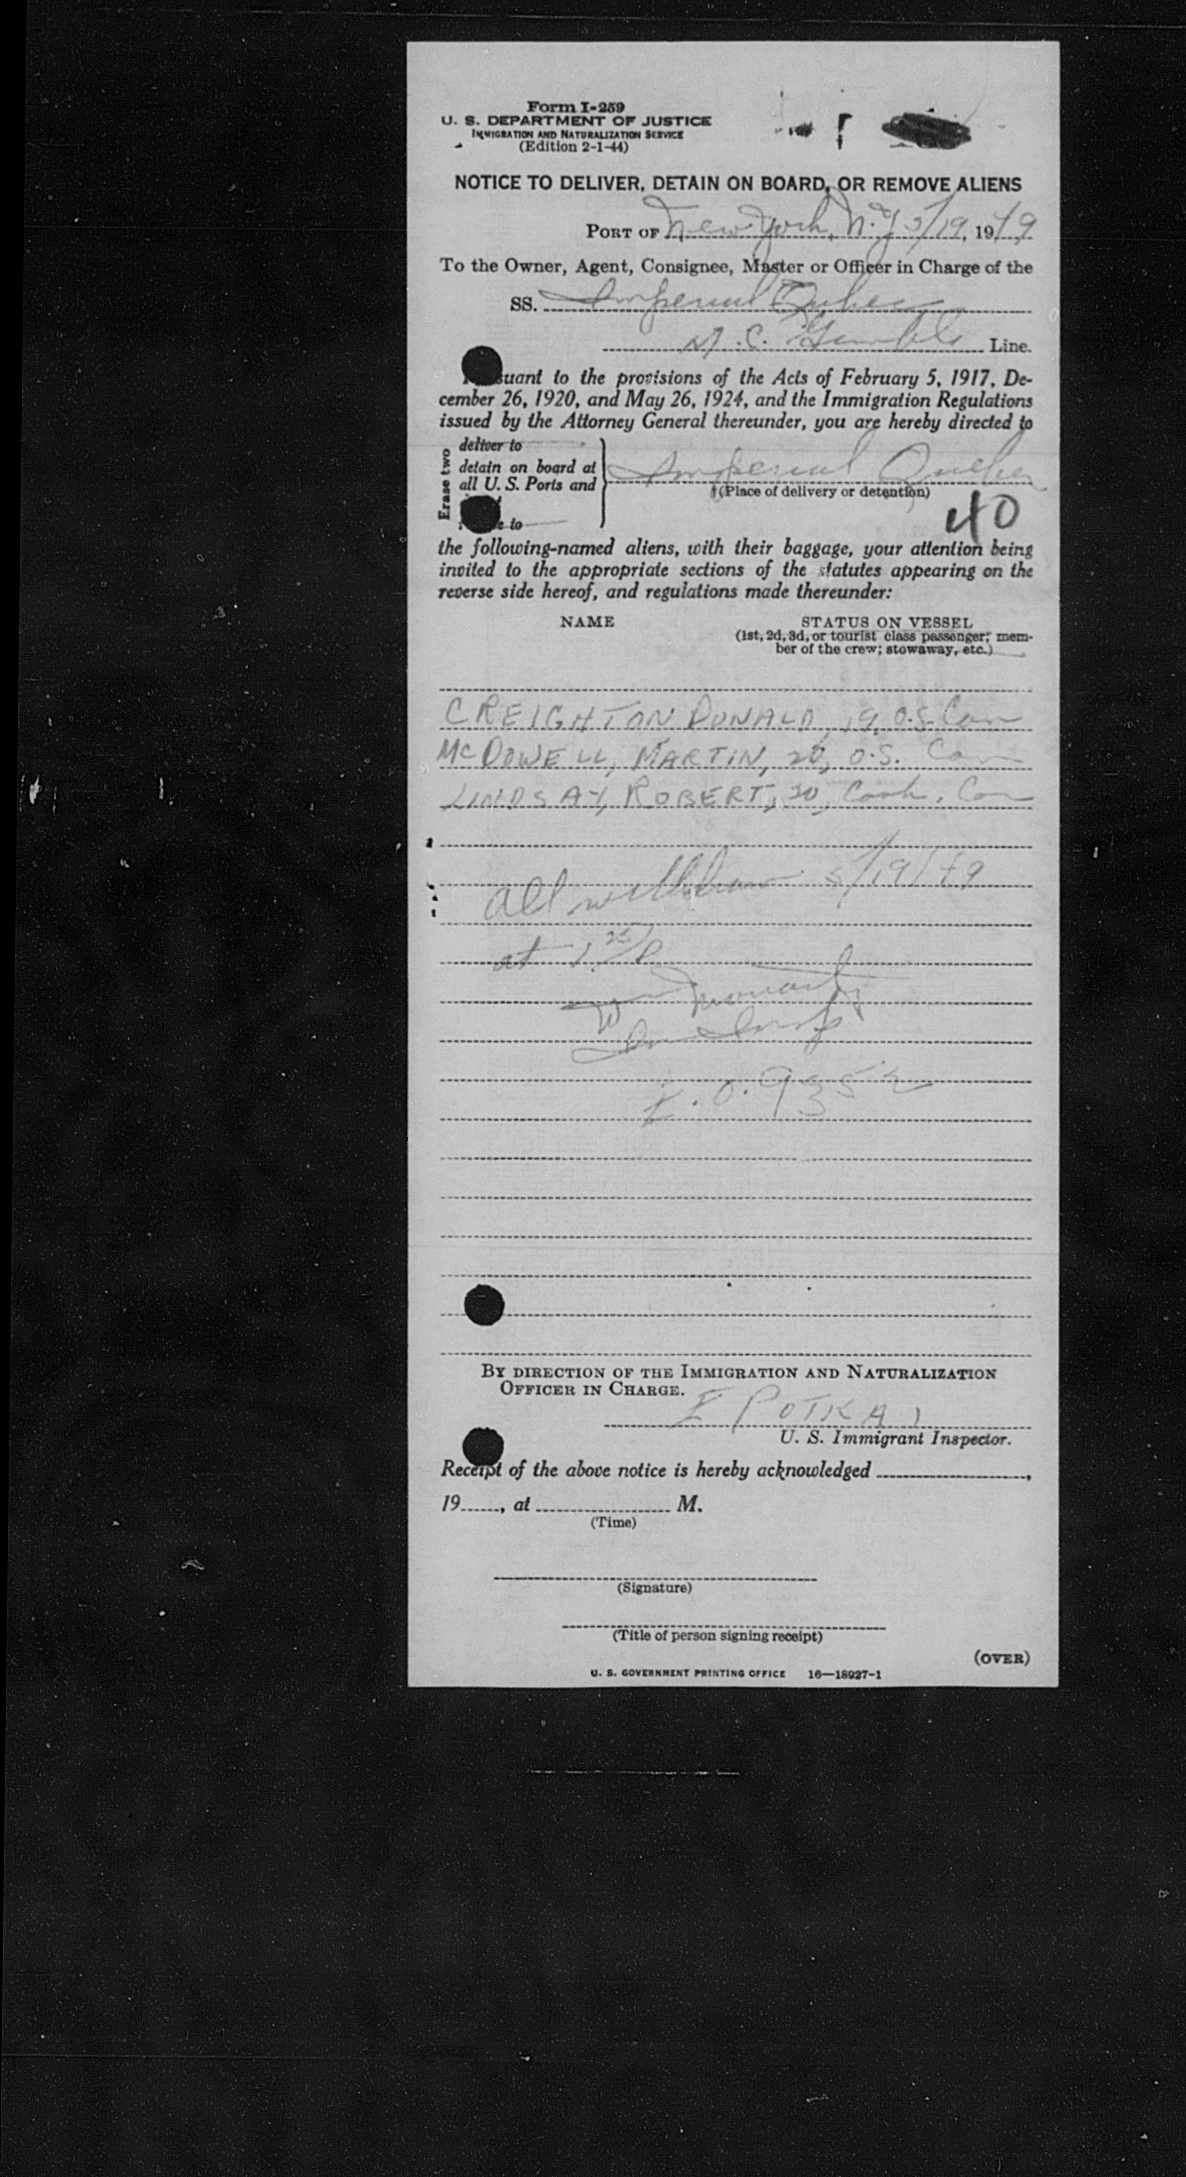 Form I-259
U. S. DEPARTMENT OF JUSTICE
IMMIGRATION AND NATURALIZATION SERVICE
(Edition 2-1-44)
NOTICE TO DELIVER, DETAIN ON BOARD, OR REMOVE ALIENS
PORT OF New York, N.Y 5/19, 1949
To the Owner, Agent, Consignee, Master or Officer in Charge of the
SS. Imperial Quebec
M. C. Gamble Line.
suant to the provisions of the Acts of February 5, 1917, De-
cember 26, 1920, and May 26, 1924, and the Immigration Regulations
issued by the Attorney General thereunder, you are hereby directed to
Erase two
deliver to
detain on board at
all U. S. Ports and
to
Imperial Quebec
(Place of delivery or detention)
40
the following-named aliens, with their baggage, your attention being
invited to the appropriate sections of the statutes appearing on the
reverse side hereof, and regulations made thereunder:
NAME STATUS ON VESSEL
(1st, 2d, 3d, or tourist class passenger; mem-
ber of the crew; stowaway, etc.)
CREIGHTON DONALD, 19, O.S. Can
McDOWELL, MARTIN, 20, O.S. Can
LINDSAY, ROBERT, 20, Cook, Can
all withdrawn 5/19/49
at 1 25/P
Imm Insp
E.O. 9352
BY DIRECTION OF THE IMMIGRATION AND NATURALIZATION
OFFICER IN CHARGE.
E POTKAI
U. S. Immigrant Inspector.
Receipt of the above notice is hereby acknowledged ,
19 , at M.
(Time)
(Signature)
(Title of person signing receipt)
(OVER)
U. S. GOVERNMENT PRINTING OFFICE 16—18927-1